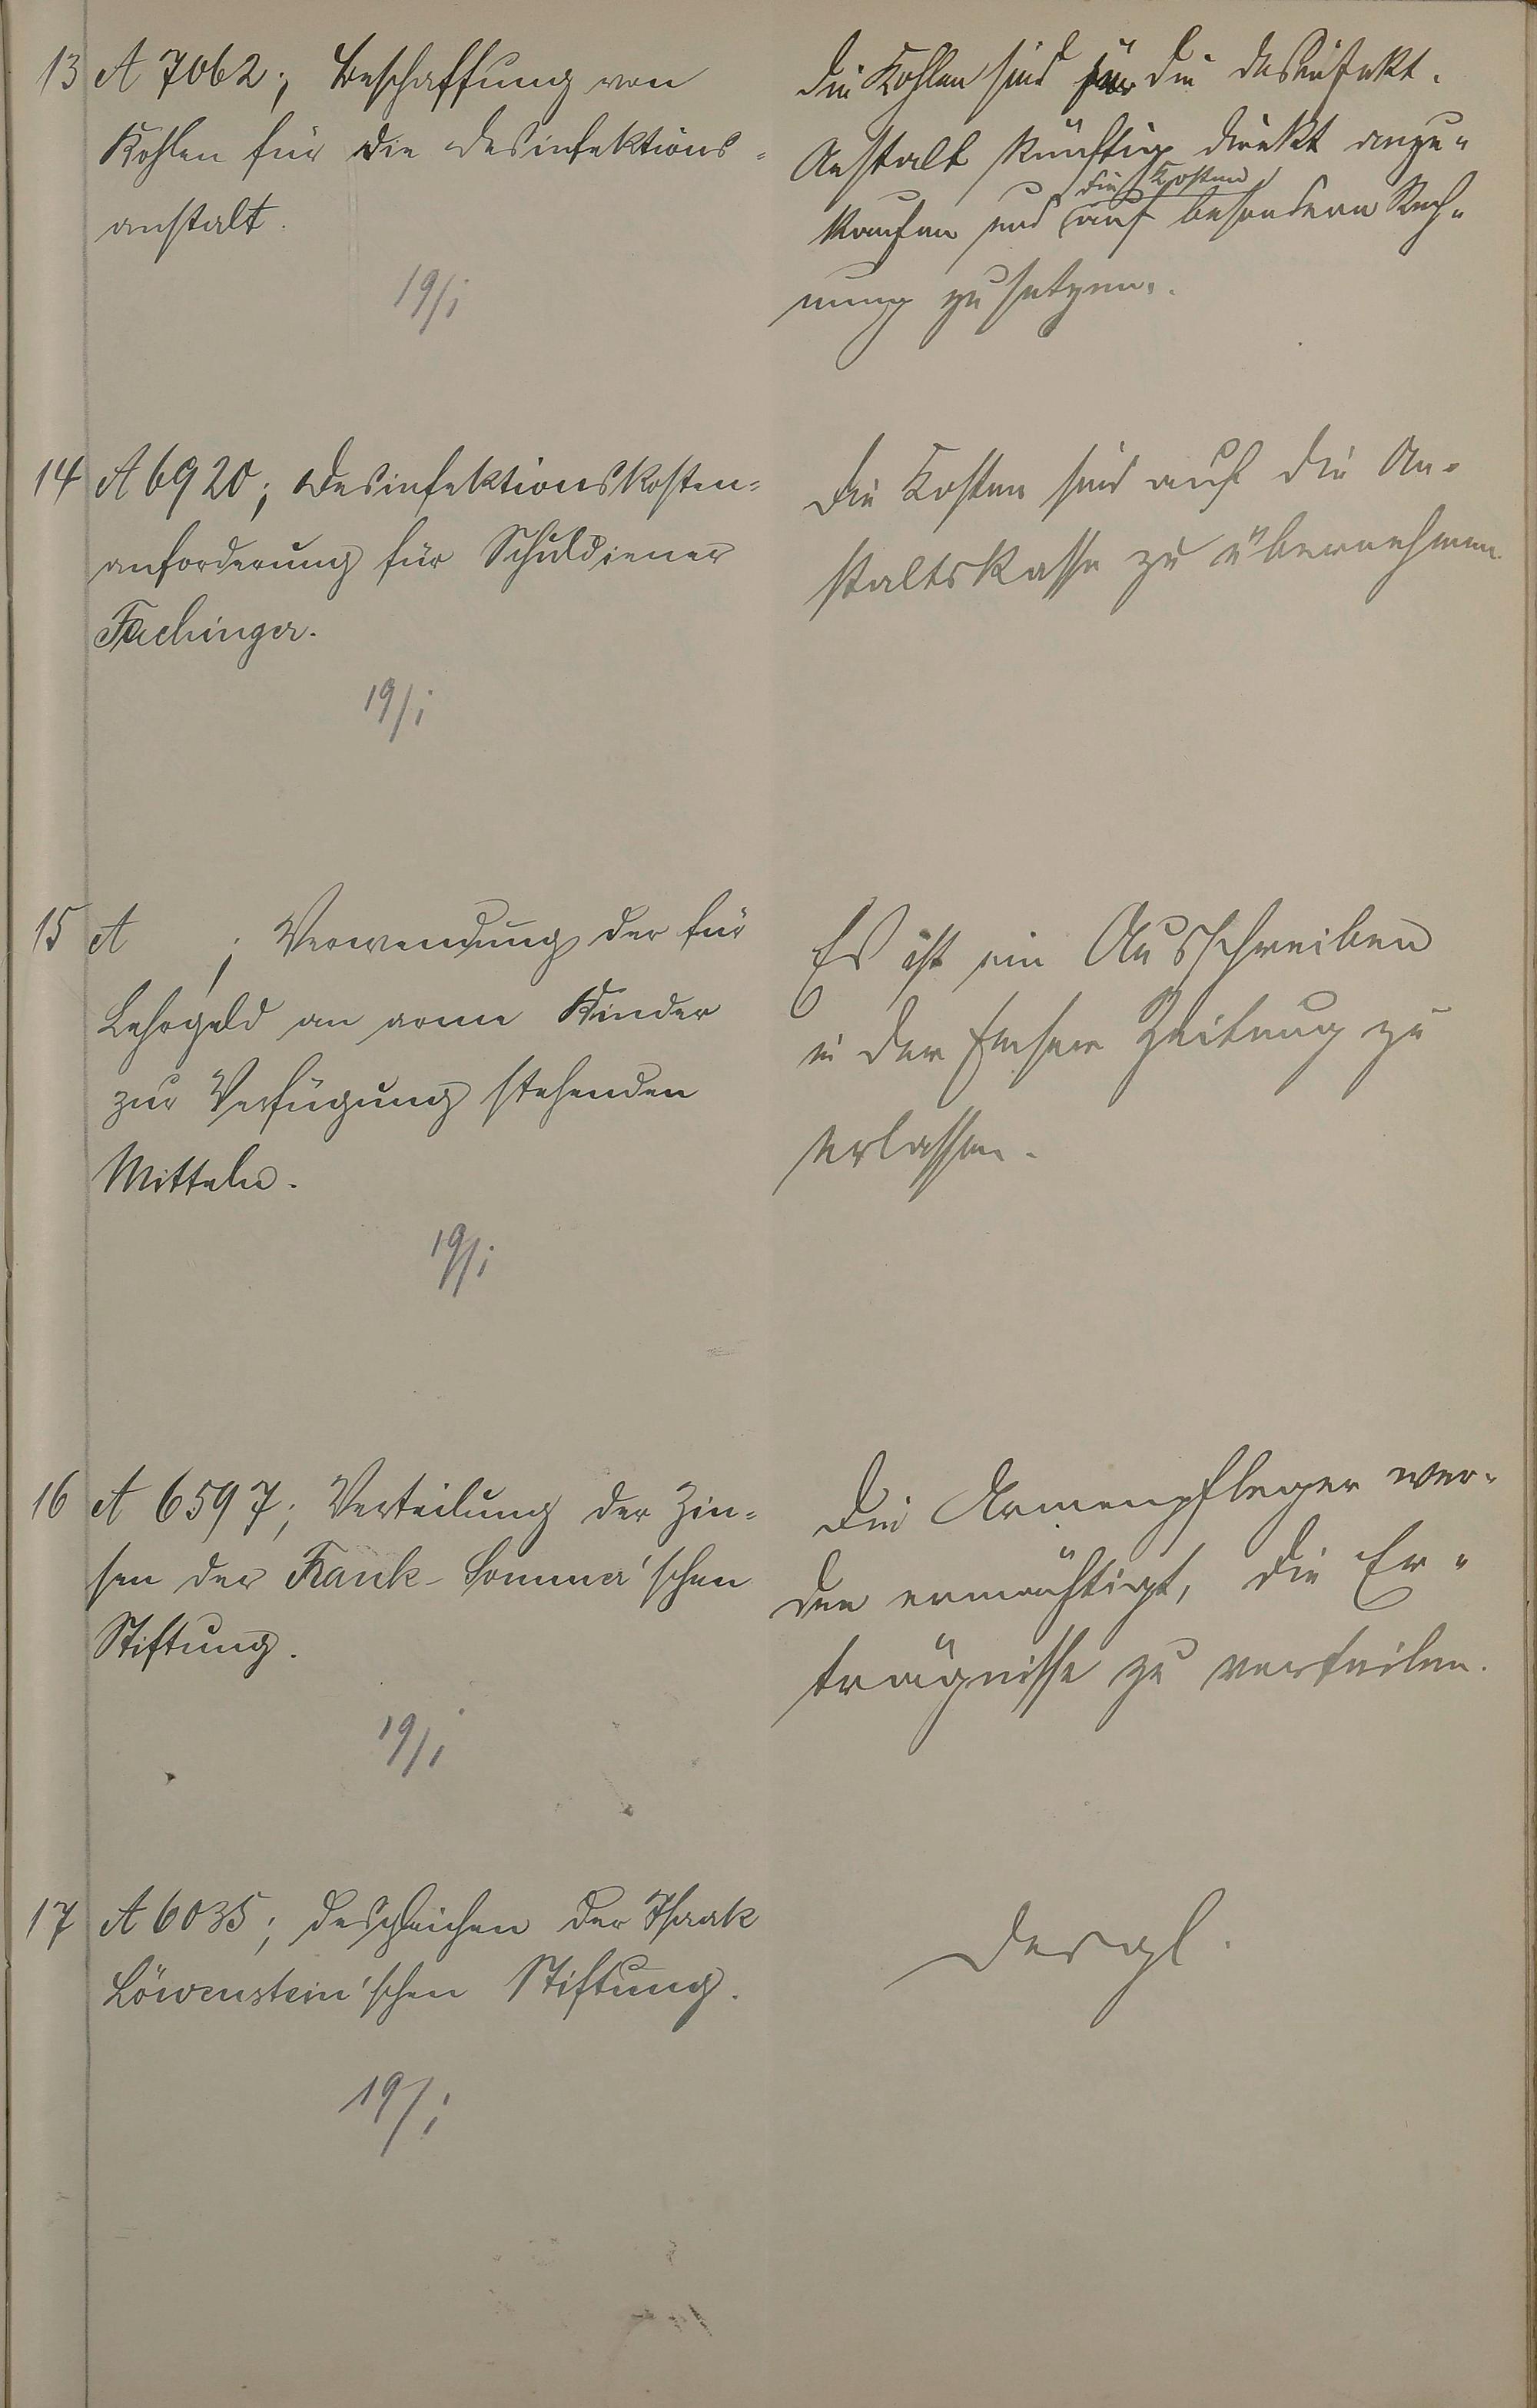 13 A 7062; Beschaffung von
Kohlen für die Desinfektions=
anstalt.
19/i
Die Kohlen sind für die Desinfekt.
Anstalt künftig direkt anzu=
kaufen und die Kosten auf besondern Rech=
nung zu setzen.
14 A 6920; Desinfektionskosten=
anforderung für Schuldiener
Fachinger.
19/i
Die Kosten sind auf die An=
staltskasse zu übernehmen.
15 A ; Verwendung der für
Lehrgeld an arme Kinder
zur Verfügung stehenden
Mitteln.
19/i
Es ist ein Ausschreiben
in der Emser Zeitung zu
erlassen.
16 A 6597; Verteilung der Zin=
sen der Frank-Sommer'schen
Stiftung.
19/i
Die Armenpfleger wer=
den ermächtigt, die Er=
trägnisse zu verteilen.
17 A 6035; desgleichen der Isaak
Löwenstein'schen Stiftung.
19/i
Dergl.